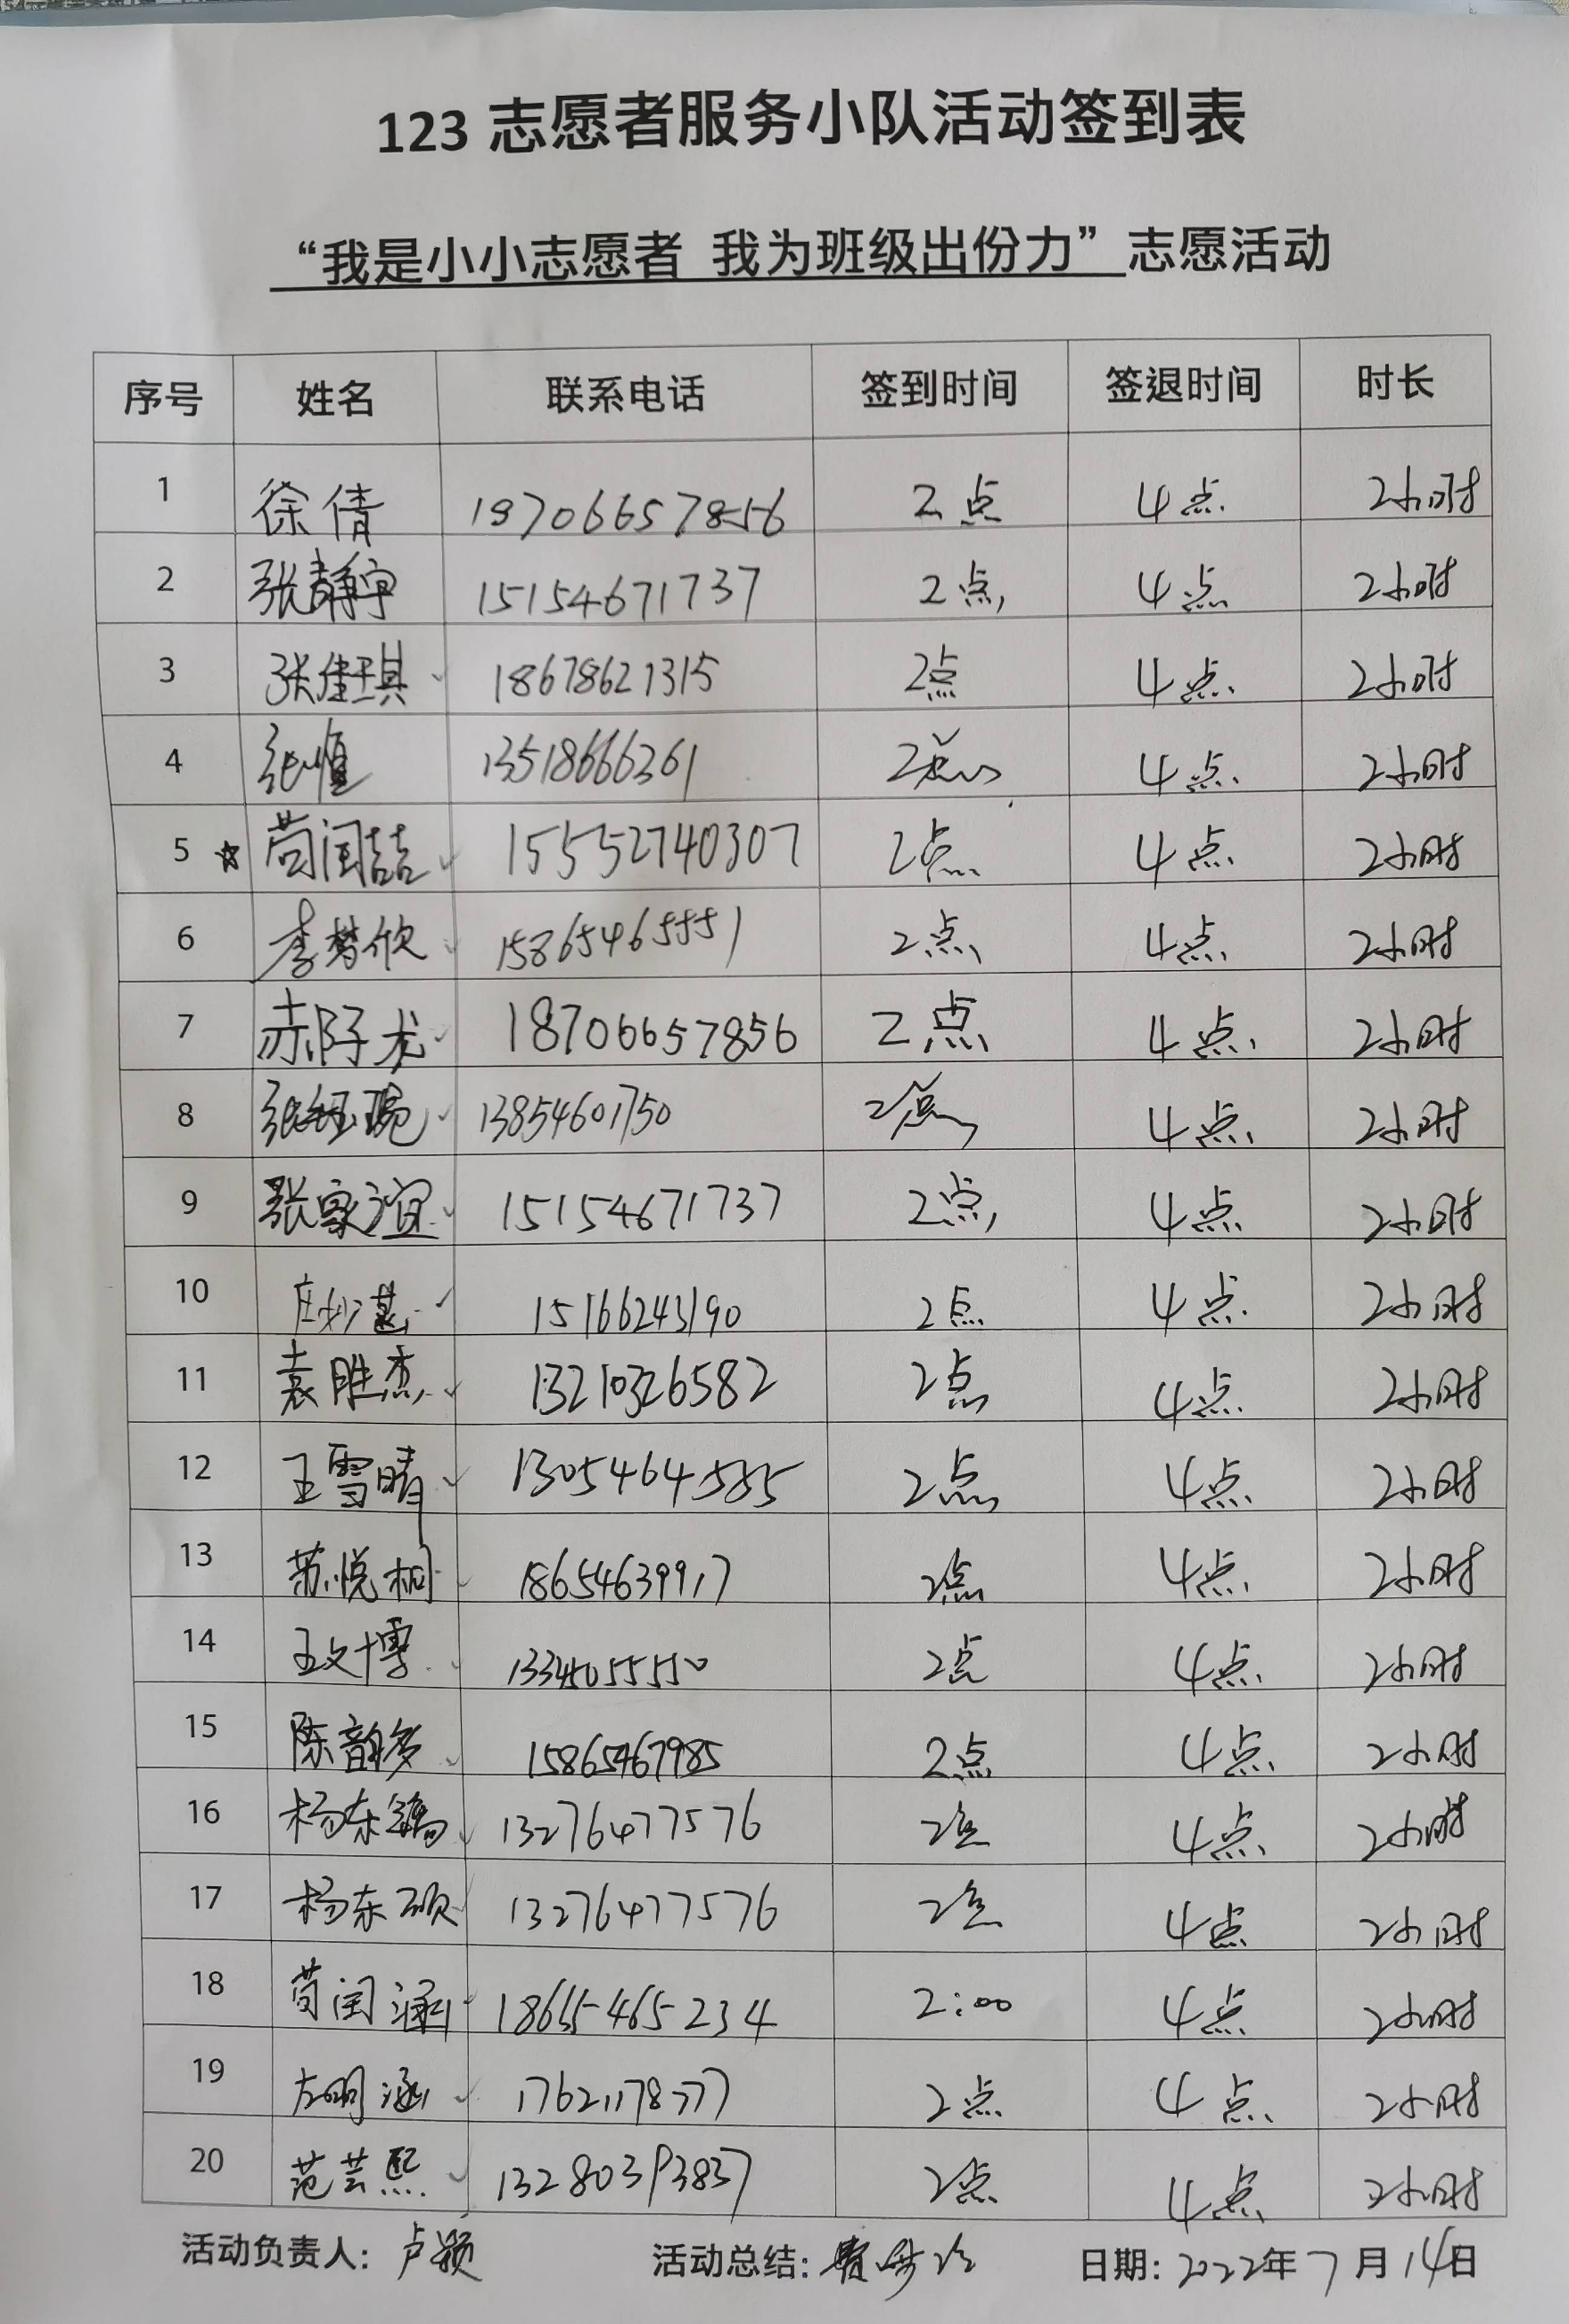 123 志愿者服务小队活动签到表
“我是小小志愿者 我为班级出份力”志愿活动
序号 姓名 联系电话 签到时间 签退时间 时长
1 徐倩 18706657856 2点 4点 2小时
2 张静宇 15154671737 2点 4点 2小时
3 张佳琪 18678621315 2点 4点 2小时
4 张恒 13518666361 2点 4点 2小时
5 ☆ 苟闰喆 15552740307 2点 4点 2小时
6 李梦欣 15865465551 2点 4点 2小时
7 郝子龙 18706657856 2点 4点 2小时
8 张钰琬 13854601750 2点 4点 2小时
9 张家谊 15154671737 2点 4点 2小时
10 15166243190 2点 4点 2小时
11 袁胜杰 13210326582 2点 4点 2小时
12 王雪晴 1305464585 2点 4点 2小时
13 苏悦桐 18654639917 2点 4点 2小时
14 王文博 2点 4点 2小时
15 陈韵多 15865467985 2点 4点 2小时
16 杨东 13276477576 2点 4点 2小时
17 杨东硕 13276477576 2点 4点 2小时
18 苟闰涵 18655465234 2:00 4点 2小时
19 左明涵 17621178777 2点 4点 2小时
20 范芸熙 13280393837 2点 4点 2小时
活动负责人: 卢颖 活动总结: 日期: 2022年7月14日